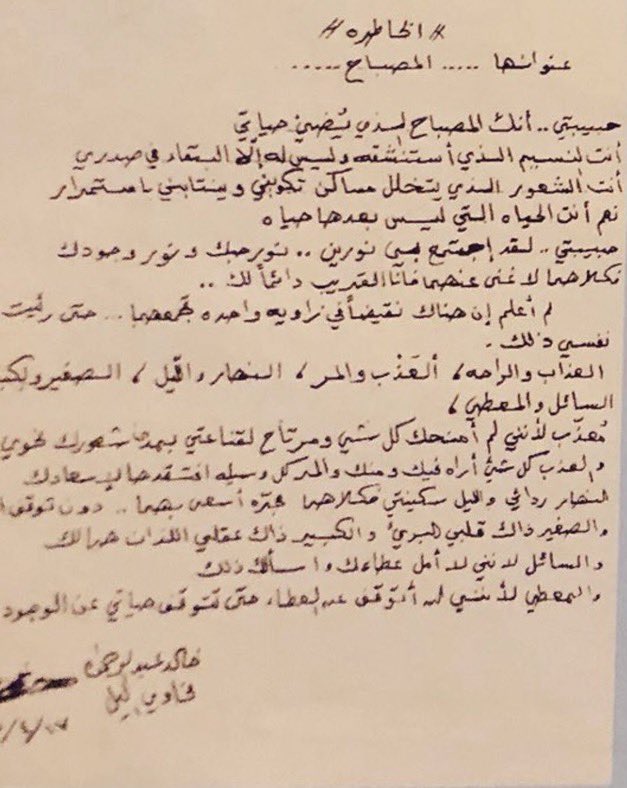 // الخاطره //
عنوانها ..... المصباح .....
حبيبتي .. أنك المصباح الذي يُضيئ حياتي
أنت النسيم الذي أستنشقه وليس له إلّا البقاء في صدري
أنت الشعور الذي يتخلل مساكن تكويني وينتابني باستمرار
نعم أنت الحياه التي ليس بعدها حياه
حبيبتي .. لقد إجتمع بي نورين .. نور حبك ونور وجودك
فكلاهما لا غنى عنهما فأنا القريب دائماً لك ..
لم أعلم إن هناك نقيضاً في زاويه واحده تجمعهما .. حتى رئيت
نفسي ذلك .
العذاب والراحه ، ألعَذْب والمر ، النهار والليل ، الصغير والكبير
السائل والمعطي ،
مُعذّب لأنني لم أمنحك كل شي ومرتاح لقناعتي بمدى شعورك نحوي
والعذب كل شئ أراه فيك ومنك والمر كل وسيله افتقدها لإسعادك
النهار ردائي والليل سكينتي فكلاهما أسعى بهما .. دون توقف
والصغير ذاك قلبي البرئ والكبير ذاك عقلي اللذان هما لك
والسائل لانني لا أمل عطاءك واسألك ذلك
والمعطي لأنني لن أتوقف عن العطاء حتى تتوقف حياتي عن الوجود
خالد عبدالرحمن